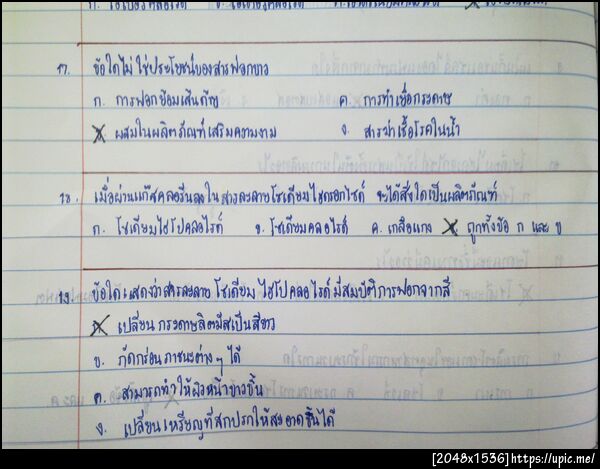 ๑๗. ข้อใดไม่ใช่ประโยชน์ของสารฟอกขาว
ก. การฟอกย้อมเส้นด้าย ค. การทำเยื่อกระดาษ
ผสมในผลิตภัณฑ์เสริมความงาม ง. สารฆ่าเชื้อโรคในน้ำ
๑๘. เมื่อผ่านแก๊สคลอรีนลงในสารละลายโซเดียมไฮดรอกไซด์ จะได้สิ่งใดเป็นผลิตภัณฑ์
ก. โซเดียมไฮโปคลอไรด์ ข. โซเดียมคลอไรด์ ค. เกลือแกง ถูกทั้งข้อ ก และ ข
๑๙. ข้อใดแสดงว่าสารละลายโซเดียมไฮโปคลอไรด์มีสมบัติการฟอกจางสี
เปลี่ยนกระดาษลิตมัสเป็นสีขาว
ข. กัดกร่อนภาชนะต่างๆ ได้
ค. สามารถทำให้ผิวหน้าขาวขึ้น
ง. เปลี่ยนเหรียญที่สกปรกให้สะอาดขึ้นได้
[2048x1536]https://upic.me/